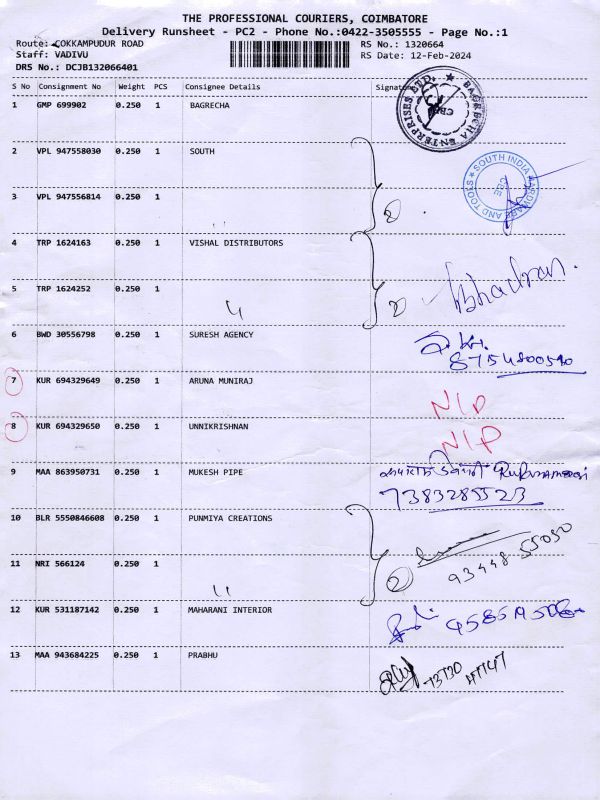 THE PROFESSIONAL COURIERS, COIMBATORE
Delivery Runsheet - PC2 - Phone No.:0422-3505555 - Page No.:1
Route: COKKAMPUDUR ROAD RS No.: 1320664
Staff: VADIVU RS Date: 12-Feb-2024
DRS No.: DCJB132066401
S No Consignment No Weight PCS Consignee Details Signature
1 GMP 699902 0.250 1 BAGRECHA
BAGRECHA ENTERPRISES LTD. ★ CBE
2 VPL 947558030 0.250 1 SOUTH
SOUTH INDIA HARDWARE AND TOOLS ★ CBE
3 VPL 947556814 0.250 1 " 2
4 TRP 1624163 0.250 1 VISHAL DISTRIBUTORS
5 TRP 1624252 0.250 1 " 2
6 BWD 30556798 0.250 1 SURESH AGENCY
7 KUR 694329649 0.250 1 ARUNA MUNIRAJ N/P
8 KUR 694329650 0.250 1 UNNIKRISHNAN N/P
9 MAA 863950731 0.250 1 MUKESH PIPE
7383285523
10 BLR 5550846608 0.250 1 PUNMIYA CREATIONS
93448 55050
11 NRI 566124 0.250 1 " 2
12 KUR 531187142 0.250 1 MAHARANI INTERIOR
13 MAA 943684225 0.250 1 PRABHU